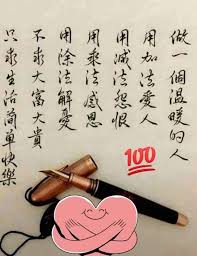 做一個溫暖的人
用加法愛人
用减法怨恨
用乘法感恩
用除法解憂
不求大富大貴
只求生活简单快樂
100